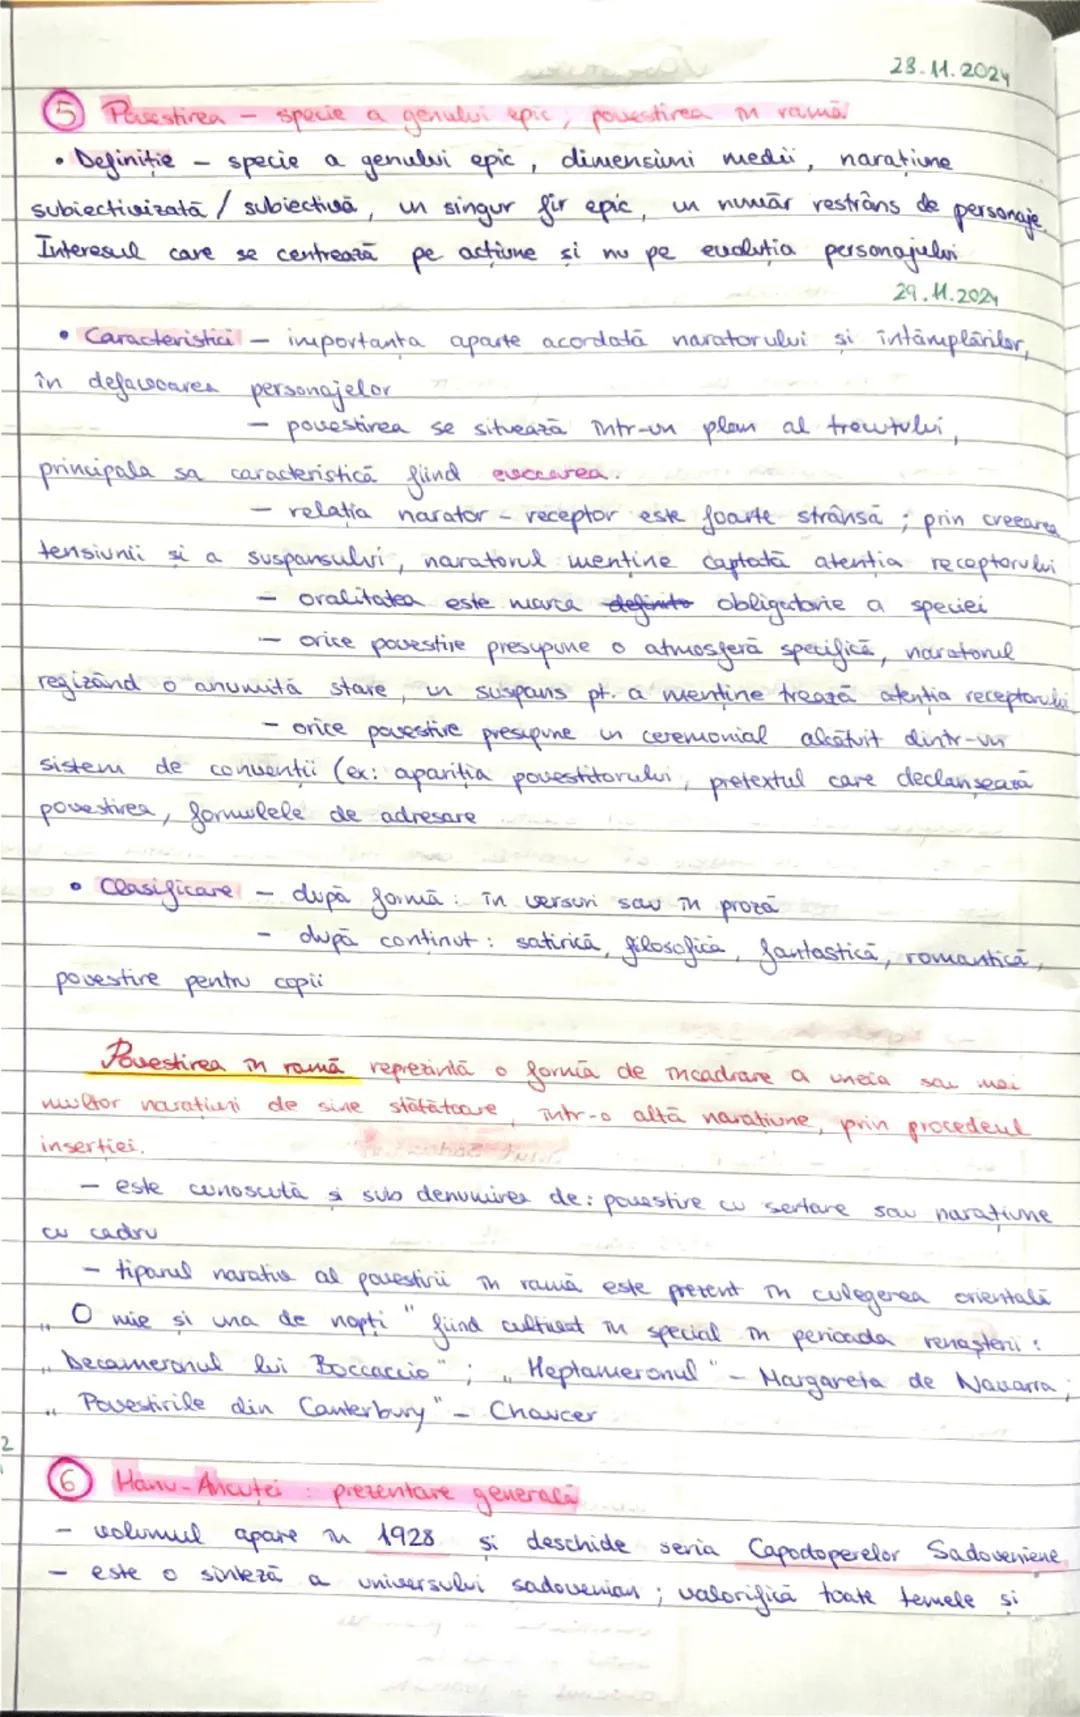 28.11.2024
5 Povestirea - specie a genului epic, povestirea în ramă
• Definiție - specie a genului epic, dimensiuni medii, narațiune
subiectivizată / subiectivă, un singur fir epic, un număr restrâns de personaje.
Interesul care se centrează pe acțiune și nu pe evoluția personajului
29.11.2024
• Caracteristici - importanța aparte acordată naratorului și întâmplărilor,
în defavoarea personajelor
- povestirea se situează într-un plan al trecutului,
principala sa caracteristică fiind evocarea.
- relația narator - receptor este foarte strânsă; prin creearea
tensiunii și a suspansului, naratorul menține captată atenția receptorului
- oralitatea este marca definito obligatorie a speciei
- orice povestire presupune o atmosferă specifică, naratorul
regizând o anumită stare, un suspans pt. a menține trează atenția receptorului
- orice povestire presupune un ceremonial alcătuit dintr-un
sistem de convenții (ex: apariția povestitorului, pretextul care declansează
povestirea, formulele de adresare
• Clasificare - după formă: în versuri sau în proză
- după conținut: satirică, filosofică, fantastică, romantică,
povestire pentru copii
Povestirea în ramă reprezintă o formă de încadrare a uneia sau mai
multor narațiuni de sine stătătoare, într-o altă narațiune, prin procedeul
inserției.
- este cunoscută și sub denumirea de: povestire cu sertare sau narațiune
cu cadru
- tiparul narativ al povestirii în ramă este prezent în culegerea orientală
„O mie și una de nopți" fiind cultivat în special în perioada renașterii:
„Decameronul lui Boccaccio"; „Heptameronul" - Margareta de Navarra;
„Povestirile din Canterbury" - Chaucer
2
6 Hanu-Ancuței: prezentare generală
- volumul apare în 1928 și deschide seria Capodoperelor Sadoveniene
- este o sinteză a universului sadovenian; valorifică toate temele și